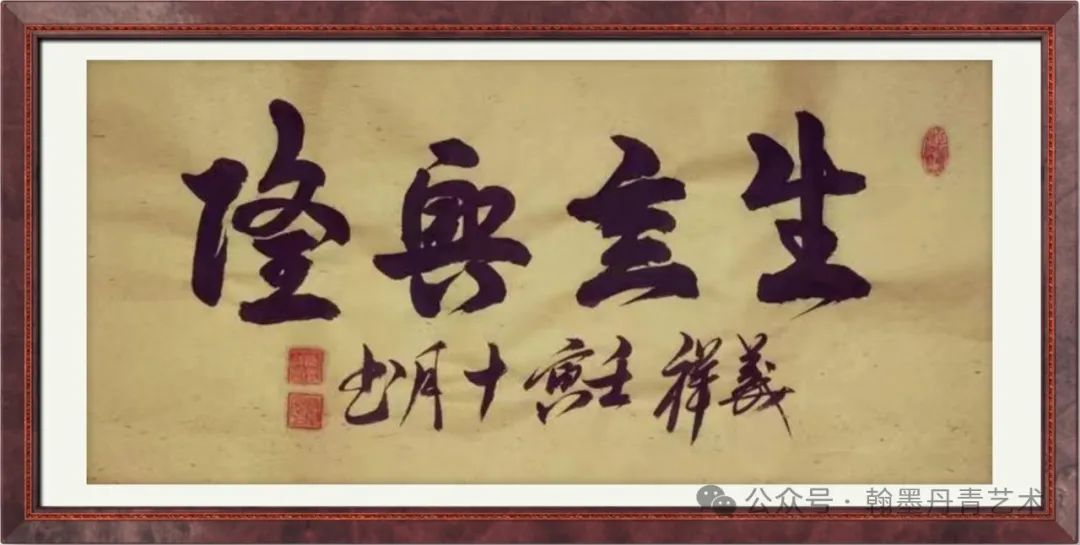 生意興隆
義祥 壬寅 十月书
公众号 · 翰墨丹青艺术